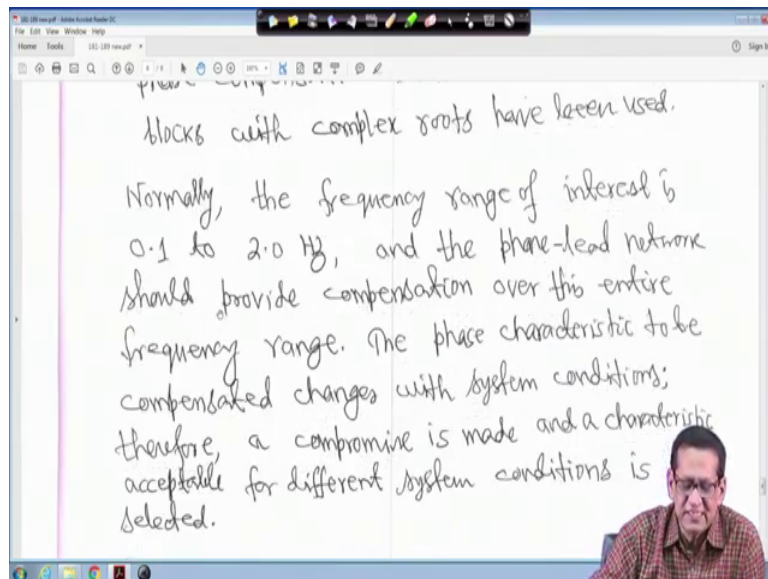 181-189 new.pdf - Adobe Acrobat Reader DC
File Edit View Window Help
Home Tools 181-189 new.pdf × Sign In
blocks with complex roots have been used.
Normally, the frequency range of interest is
0.1 to 2.0 Hz, and the phase-lead network
should provide compensation over this entire
frequency range. The phase characteristic to be
compensated changes with system conditions;
therefore, a compromise is made and a characteristic
acceptable for different system conditions is
selected.